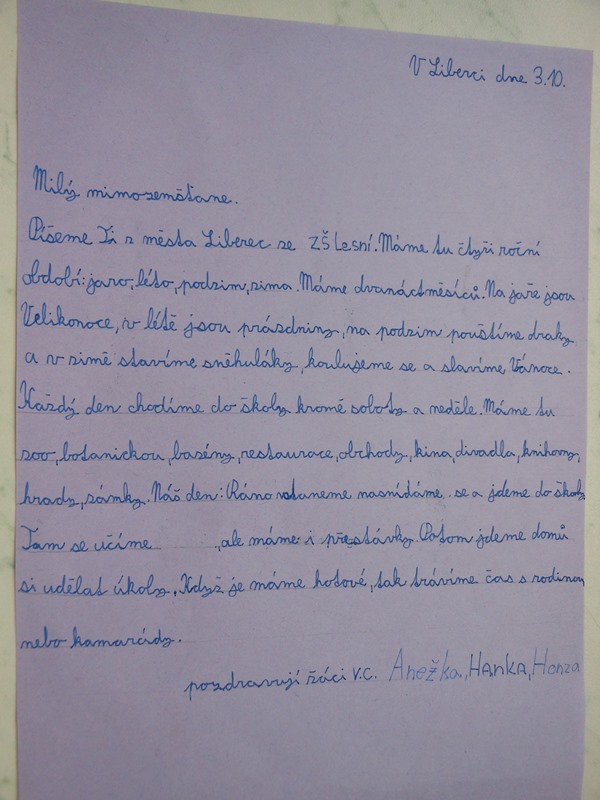 V Liberci dne 3.10.
Milý mimozemšťane.
Píšeme Ti z města Liberec se ZŠ Lesní. Máme tu čtyři roční
období: jaro, léto, podzim, zima. Máme dvanáct měsíců. Na jaře jsou
Velikonoce, v létě jsou prázdniny, na podzim pouštíme draky
a v zimě stavíme sněhuláky, koulujeme se a slavíme Vánoce.
Každý den chodíme do školy kromě soboty a neděle. Máme tu
zoo, botanickou, bazény, restaurace, obchody, kina, divadla, knihovny,
hrady, zámky. Náš den: Ráno vstaneme nasnídáme se a jdeme do školy
Tam se učíme , ale máme i přestávky. Potom jdeme domů
si udělat úkoly. Když je máme hotové, tak trávíme čas s rodinou
nebo kamarády.
pozdravují žáci V.C. Anežka, HANKA, Honza